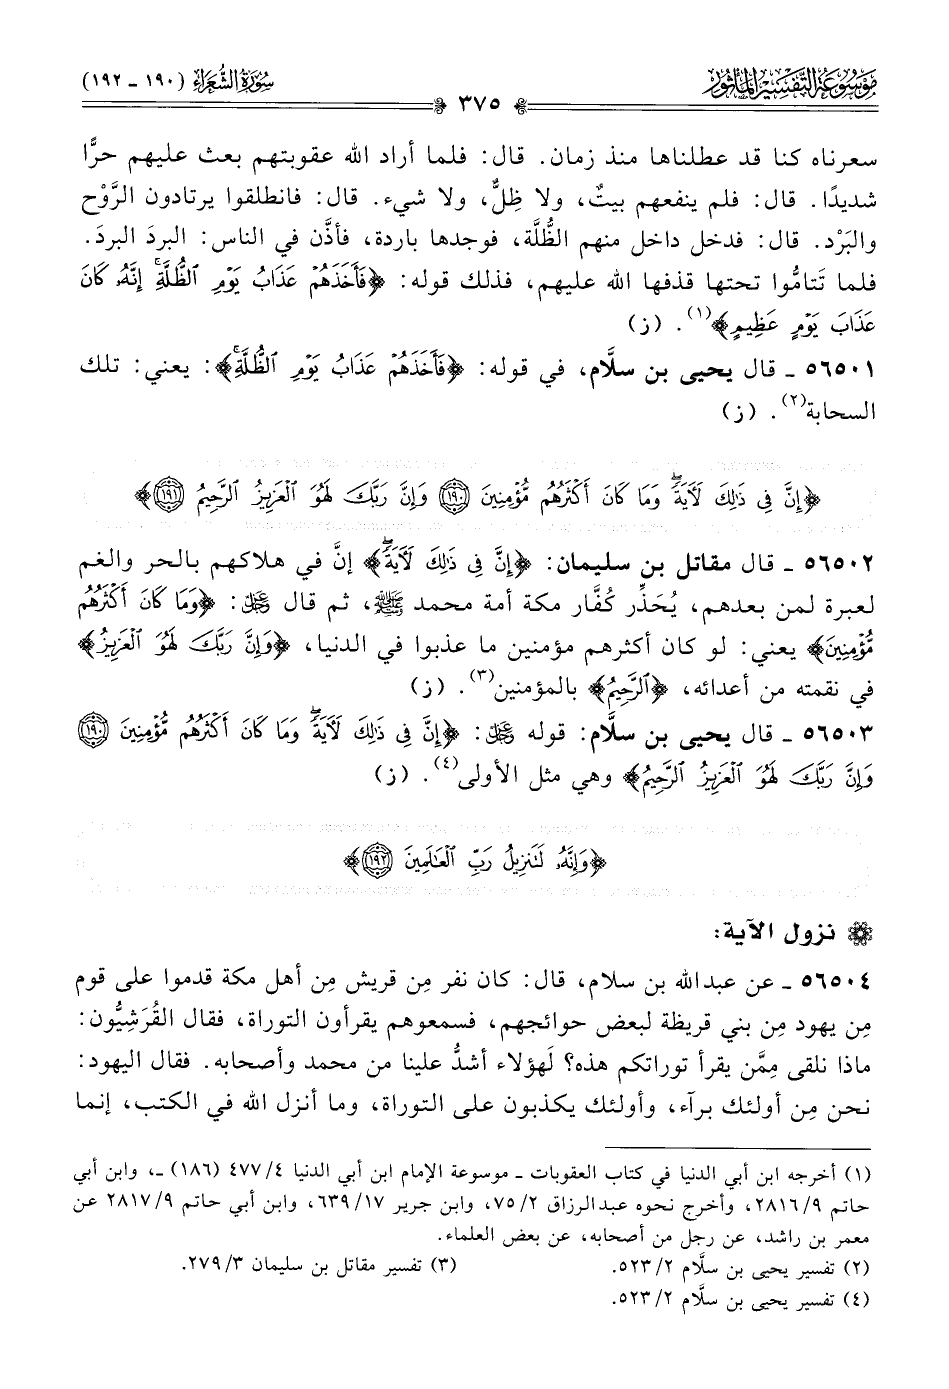 موسوعة التفسير المأثور
سورة الشعراء (١٩٠ - ١٩٢)
٣٧٥
سعرناه كنا قد عطلناها منذ زمان. قال: فلما أراد الله عقوبتهم بعث عليهم حرًّا
شديدًا. قال: فلم ينفعهم بيتٌ، ولا ظِلٌّ، ولا شيء. قال: فانطلقوا يرتادون الرَّوْح
والبَرْد. قال: فدخل داخل منهم الظُّلَّة، فوجدها باردة، فأذَّن في الناس: البردَ البردَ.
فلما تَتامُّوا تحتها قذفها الله عليهم، فذلك قوله: ﴿فَأَخَذَهُمْ عَذَابُ يَوْمِ ٱلظُّلَّةِۚ إِنَّهُۥ كَانَ
عَذَابَ يَوْمٍ عَظِيمٍ﴾(١). (ز)
٥٦٥٠١ - قال يحيى بن سلَّام، في قوله: ﴿فَأَخَذَهُمْ عَذَابُ يَوْمِ ٱلظُّلَّةِۚ﴾: يعني: تلك
السحابة(٢). (ز)
﴿إِنَّ فِى ذَٰلِكَ لَآيَةًۖ وَمَا كَانَ أَكْثَرُهُم مُّؤْمِنِينَ ١٩٠ وَإِنَّ رَبَّكَ لَهُوَ ٱلْعَزِيزُ ٱلرَّحِيمُ ١٩١﴾
٥٦٥٠٢ - قال مقاتل بن سليمان: ﴿إِنَّ فِى ذَٰلِكَ لَآيَةًۖ﴾ إنَّ في هلاكهم بالحر والغم
لعبرة لمن بعدهم، يُحَذِّر كُفَّار مكة أمة محمد ﷺ، ثم قال ﷿: ﴿وَمَا كَانَ أَكْثَرُهُم
مُّؤْمِنِينَ﴾ يعني: لو كان أكثرهم مؤمنين ما عذبوا في الدنيا، ﴿وَإِنَّ رَبَّكَ لَهُوَ ٱلْعَزِيزُ﴾
في نقمته من أعدائه، ﴿ٱلرَّحِيمُ﴾ بالمؤمنين(٣). (ز)
٥٦٥٠٣ - قال يحيى بن سلَّام: قوله ﷿: ﴿إِنَّ فِى ذَٰلِكَ لَآيَةًۖ وَمَا كَانَ أَكْثَرُهُم مُّؤْمِنِينَ ١٩٠
وَإِنَّ رَبَّكَ لَهُوَ ٱلْعَزِيزُ ٱلرَّحِيمُ﴾ وهي مثل الأولى(٤). (ز)
﴿وَإِنَّهُۥ لَتَنزِيلُ رَبِّ ٱلْعَٰلَمِينَ ١٩٢﴾
نزول الآية:
٥٦٥٠٤ - عن عبدالله بن سلام، قال: كان نفر مِن قريش مِن أهل مكة قدموا على قوم
مِن يهود مِن بني قريظة لبعض حوائجهم، فسمعوهم يقرأون التوراة، فقال القُرَشِيُّون:
ماذا نلقى مِمَّن يقرأ توراتكم هذه؟ لَهؤلاء أشدُّ علينا من محمد وأصحابه. فقال اليهود:
نحن مِن أولئك برآء، وأولئك يكذبون على التوراة، وما أنزل الله في الكتب، إنما
(١) أخرجه ابن أبي الدنيا في كتاب العقوبات - موسوعة الإمام ابن أبي الدنيا ٤/ ٤٧٧ (١٨٦) -، وابن أبي
حاتم ٩/ ٢٨١٦، وأخرج نحوه عبدالرزاق ٢/ ٧٥، وابن جرير ١٧/ ٦٣٩، وابن أبي حاتم ٩/ ٢٨١٧ عن
معمر بن راشد، عن رجل من أصحابه، عن بعض العلماء.
(٢) تفسير يحيى بن سلَّام ٢/ ٥٢٣.
(٣) تفسير مقاتل بن سليمان ٣/ ٢٧٩.
(٤) تفسير يحيى بن سلَّام ٢/ ٥٢٣.